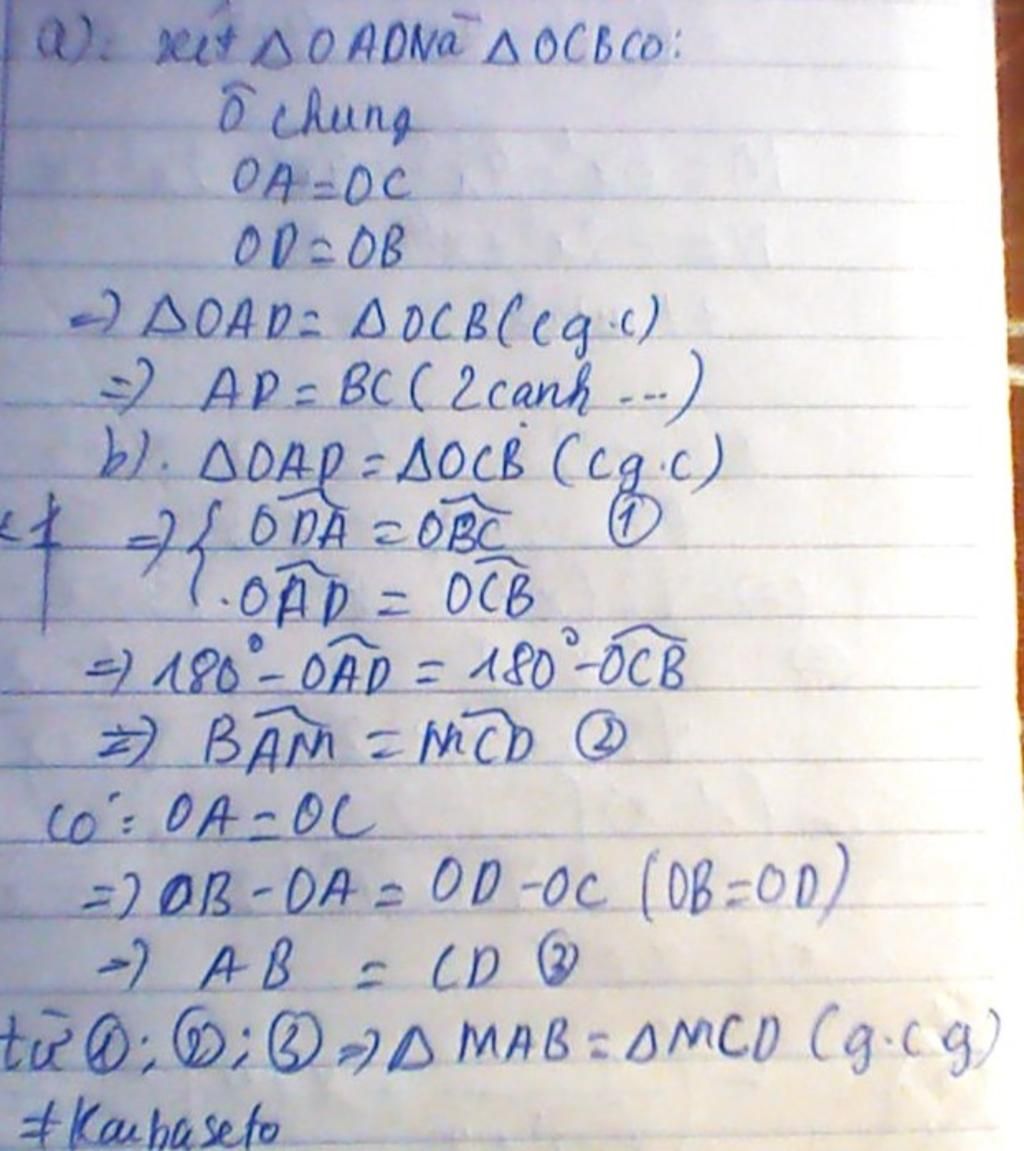 a). xét △OAD và △OCB có:
Ô chung
OA = OC
OD = OB
=> △OAD = △OCB (c g.c)
=> AD = BC ( 2 cạnh ...)
b). △OAD = △OCB (c g.c)
=> { ODA = OBC ①
OAD = OCB
=> 180° - OAD = 180° - OCB
=> BAM = MCD ②
có: OA = OC
=> OB - OA = OD - OC (OB = OD)
=> AB = CD ③
từ ①; ②; ③ => △ MAB = △MCD (g.c g)
≠ Kaubaseto